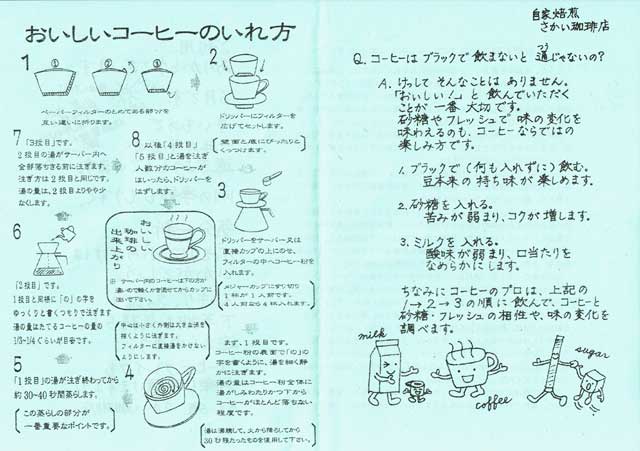 おいしいコーヒーのいれ方
1
① ② ③
ペーパーフィルターのとめてある部分を
互い違いに折ります。
2
ドリッパーにフィルターを
広げてセットします。
壁面と底にぴったりと
くっつけます。
3
ドリッパーをサーバー又は
直接カップの上にのせ、
フィルターの中へコーヒー粉を
入れます。
メジャーカップにすり切り
1杯が1人前です。
4人前なら4杯入れます。
4
まず、1投目です。
コーヒー粉の表面で「の」の
字を書くように、湯を細く静
かに注ぎます。
湯の量はコーヒー粉全体に
湯がしみわたりかつ下から
コーヒーがほとんど落ちない
程度です。
湯は沸騰して、火から降ろしてから
30秒程たったものを使用して下さい。
5
「1投目」の湯が注ぎ終わってから
約30~40秒間蒸らします。
この蒸らしの部分が
一番重要なポイントです。
6
「2投目」です。
1投目と同様に「の」の字を
ゆっくりと書くつもりで注ぎます
湯の量はたてるコーヒーの量の
1/3~1/4ぐらいが目安です。
中心は小さく外側は大きな渦を
描くように注ぎます。
フィルターに直接湯をかけない
ようにします。
7
「3投目」です。
2投目の湯がサーバー内へ
全部落ちきる前に注ぎます。
注ぎ方は2投目と同じです。
湯の量は、2投目よりやや少
なくします。
8 以後「4投目」
「5投目」と湯を注ぎ
人数分のコーヒーが
はいったら、ドリッパーを
はずします。
おいしい
珈琲の
出来上がり
※ サーバー内のコーヒーは下の方が
濃いので軽くかき混ぜてからカップに
注いで下さい。
自家焙煎
さかい珈琲店
Q. コーヒーは ブラックで飲まないと 通じゃないの?
つう
A. けっして そんなことは ありません。
「おいしい!」と 飲んでいただく
ことが 一番 大切です。
砂糖や フレッシュで 味の変化を
味わえるのも、コーヒーならではの
楽しみ方です。
1. ブラックで(何も入れずに)飲む。
豆本来の 持ち味が 楽しめます。
2. 砂糖を 入れる。
苦みが 弱まり、コクが 増します。
3. ミルクを 入れる。
酸味が 弱まり、口当たりを
なめらかに します。
ちなみに コーヒーのプロは、上記の
1→2→3の 順に 飲んで、コーヒーと
砂糖・フレッシュの 相性や、味の変化を
調べます。
milk
coffee
sugar